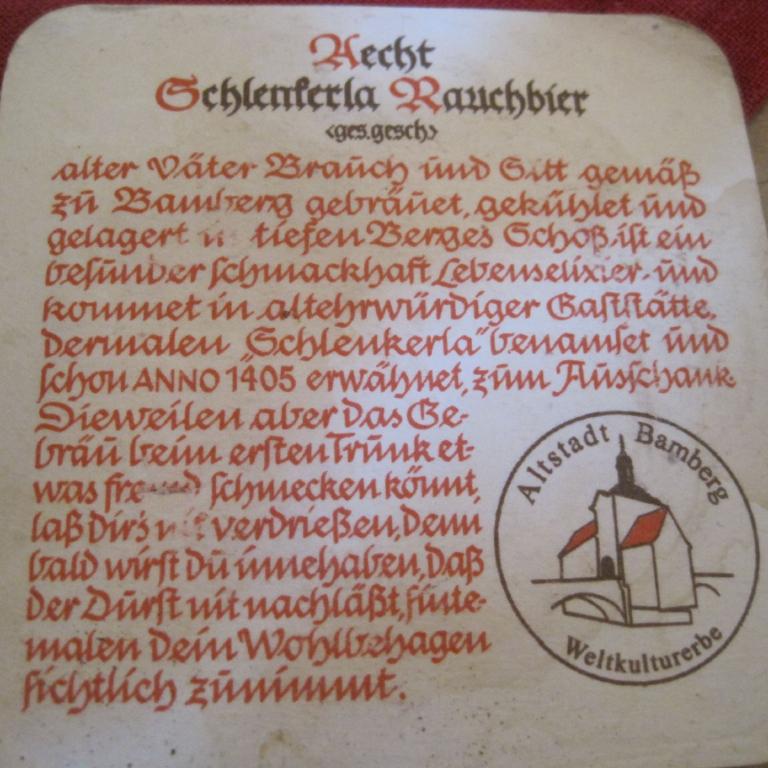 Aecht
Schlenkerla Rauchbier
<ges.gesch>
alter Väter Brauch und Sitt gemäß
zu Bamberg gebräuet, gekühlet und
gelagert in tiefen Berges Schoß, ist ein
besunder schmackhaft Lebenselixier, und
kommet in altehrwürdiger Gaststätte,
dermalen „Schlenkerla“ benamset und
schon ANNO 1405 erwähnet, zum Ausschank.
Dieweilen aber das Ge-
bräu beim ersten Trunk et-
was fremd schmecken könnt,
laß Dir's nit verdrießen, denn
bald wirst Du innehaben, daß
der Durst nit nachläßt, sinte-
malen Dein Wohlbehagen
sichtlich zunimmt.
Altstadt Bamberg
Weltkulturerbe